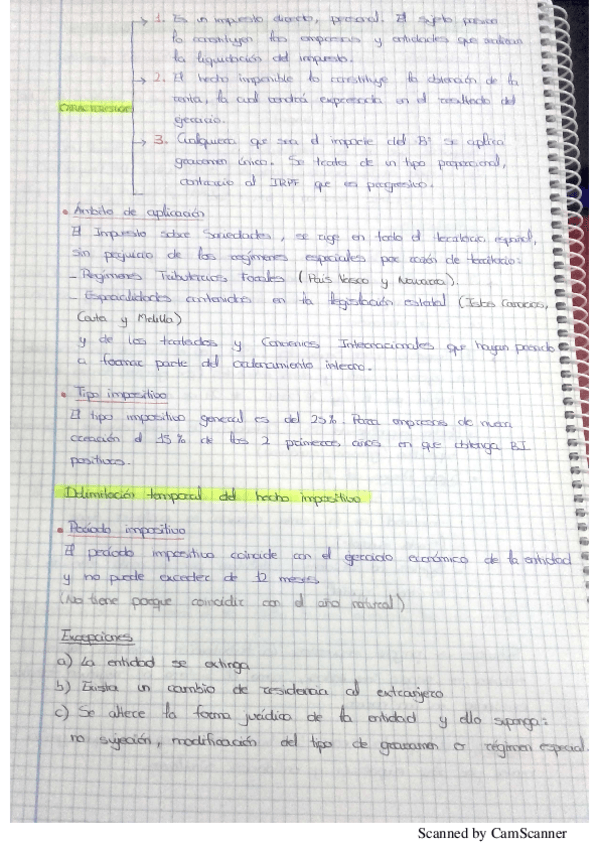 1. Es un impuesto directo, personal. El sujeto pasivo
lo constituyen las empresas y entidades que realizan
la liquidación del impuesto.
2. El hecho imponible lo constituye la obtención de la
renta, la cual vendrá expresada en el resultado del
ejercicio.
CARACTERÍSTICAS
3. Cualquiera que sea el importe del Bº se aplica
gravamen único. Se trata de un tipo proporcional,
contrario al IRPF que es progresivo.
• Ámbito de aplicación
El Impuesto sobre Sociedades, se rige en todo el territorio español,
sin perjuicio de los regímenes especiales por razón de territorio:
- Regímenes Tributarios Forales (País Vasco y Navarra).
- Especialidades contenidas en la legislación estatal (Islas Canarias,
Ceuta y Melilla)
y de los tratados y Convenios Internacionales que hayan pasado
a formar parte del ordenamiento interno.
• Tipo impositivo
El tipo impositivo general es del 25%. Para empresas de nueva
creación el 15% de los 2 primeros años en que obtenga BI
positivas.
Delimitación temporal del hecho impositivo
• Período impositivo
El período impositivo coincide con el ejercicio económico de la entidad
y no puede exceder de 12 meses
(No tiene porque coincidir con el año natural)
Excepciones
a) La entidad se extinga
b) Exista un cambio de residencia al extranjero
c) Se altere la forma jurídica de la entidad y ello suponga:
no sujeción, modificación del tipo de gravamen o régimen especial.
Scanned by CamScanner